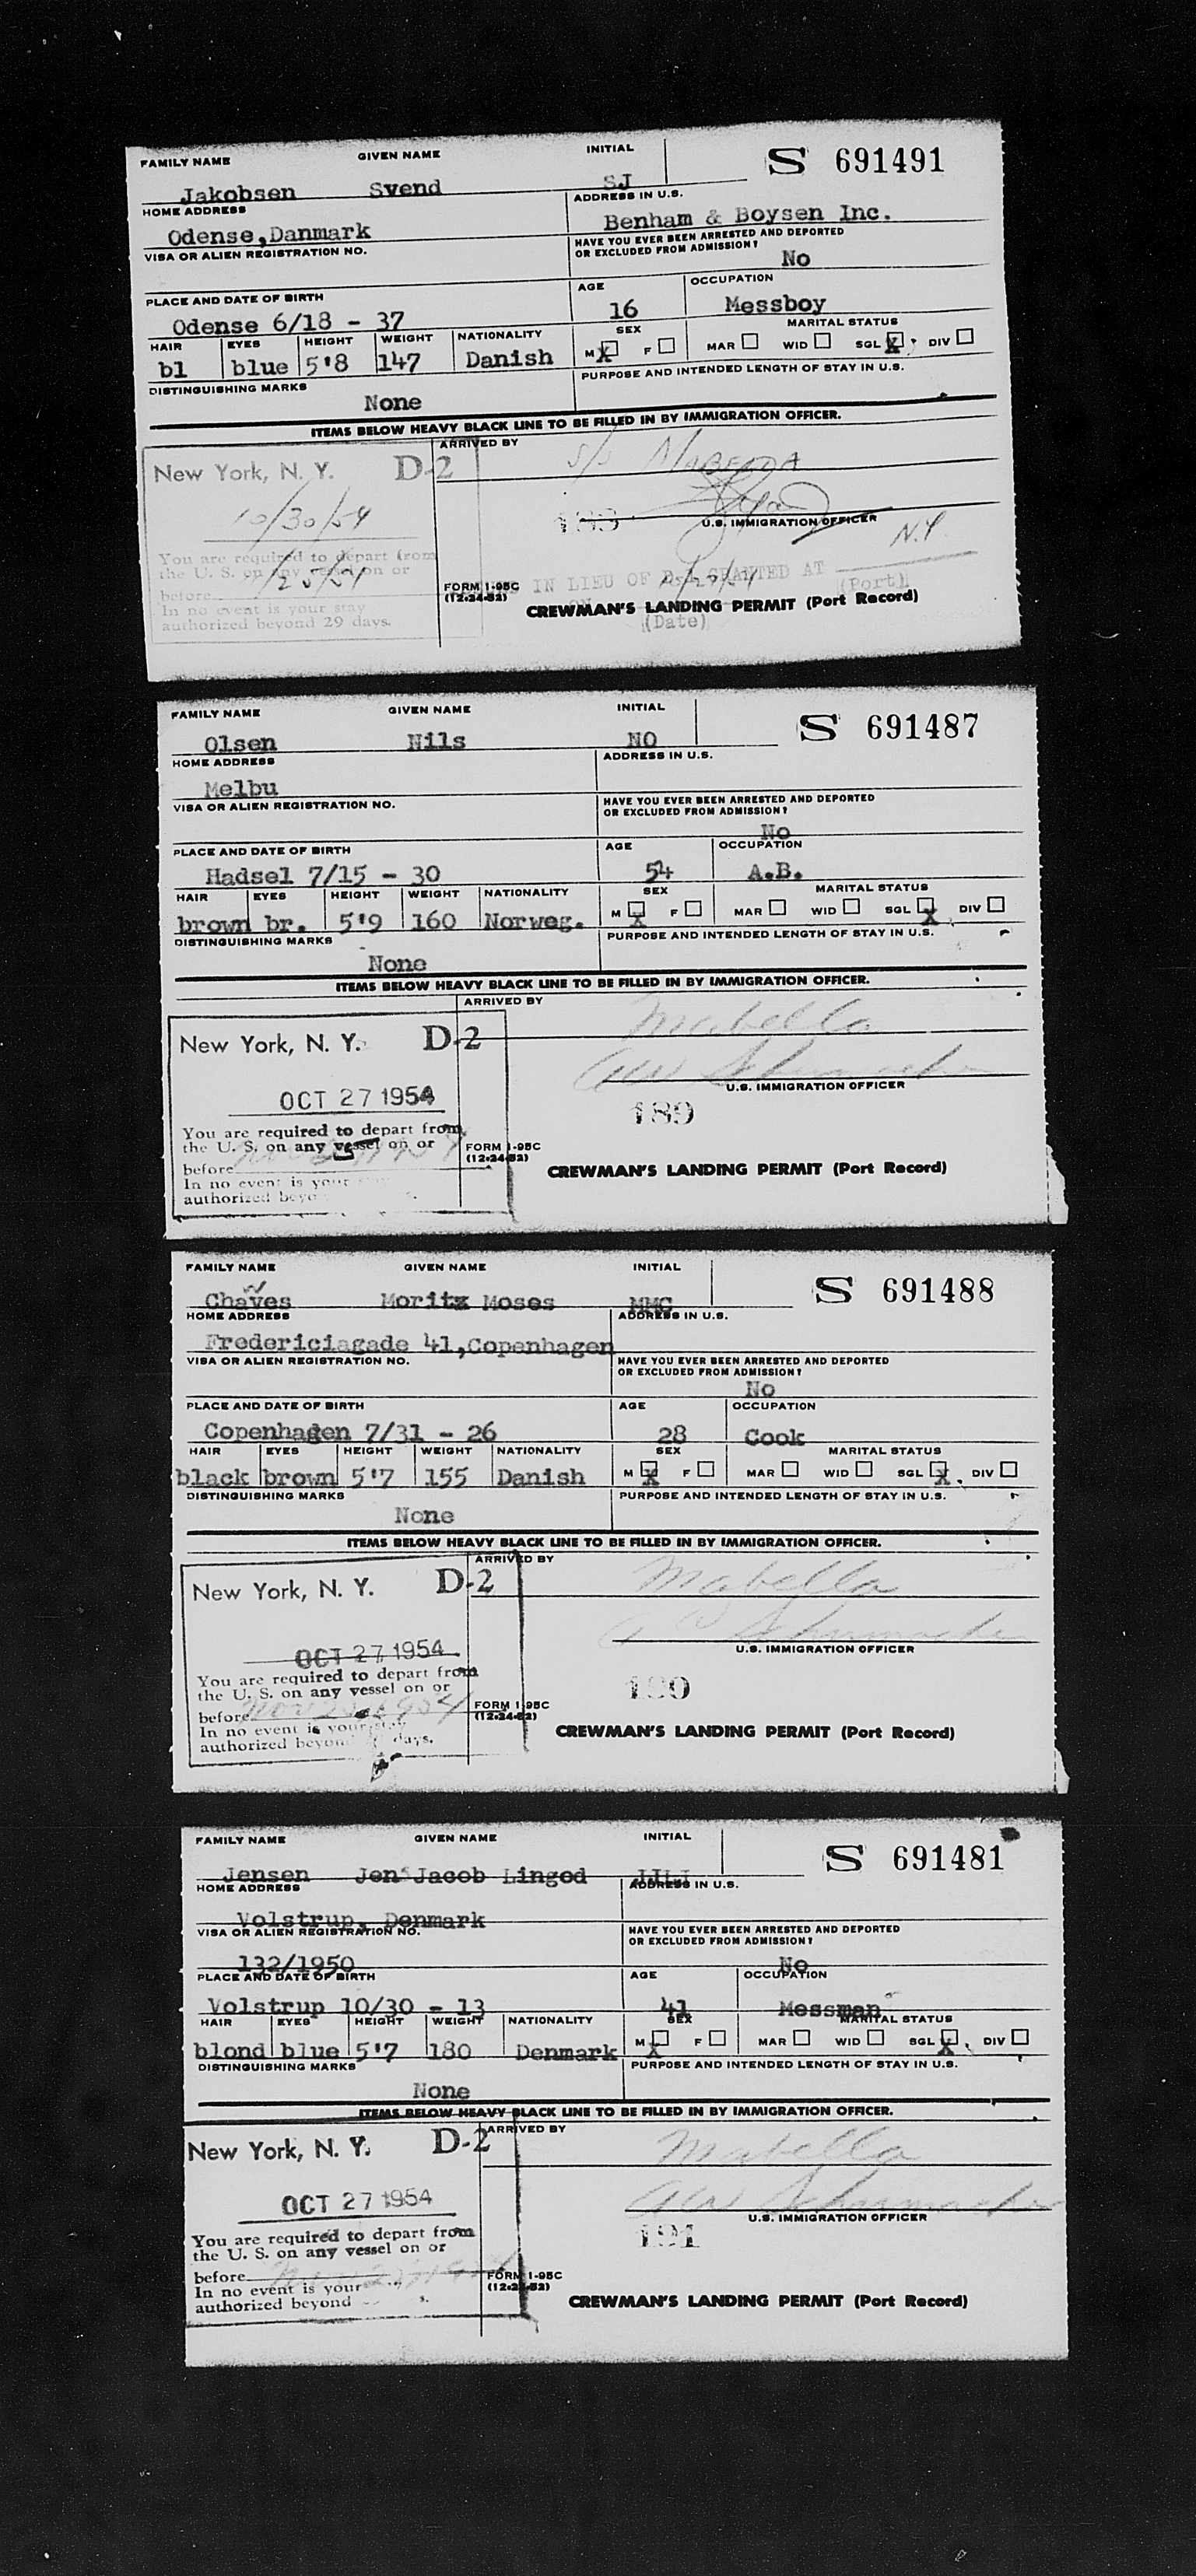 FAMILY NAME GIVEN NAME INITIAL S 691491
Jakobsen Svend SJ
HOME ADDRESS ADDRESS IN U.S.
Odense,Danmark Benham & Boysen Inc.
VISA OR ALIEN REGISTRATION NO. HAVE YOU EVER BEEN ARRESTED AND DEPORTED
OR EXCLUDED FROM ADMISSION?
No
PLACE AND DATE OF BIRTH AGE OCCUPATION
Odense 6/18 - 37 16 Messboy
HAIR EYES HEIGHT WEIGHT NATIONALITY SEX MARITAL STATUS
bl blue 5'8 147 Danish M X F MAR WID SGL X DIV
DISTINGUISHING MARKS PURPOSE AND INTENDED LENGTH OF STAY IN U.S.
None
ITEMS BELOW HEAVY BLACK LINE TO BE FILLED IN BY IMMIGRATION OFFICER.
ARRIVED BY
New York, N. Y. D-2 S/S MABELLA
10/30/54
U.S. IMMIGRATION OFFICER
N.Y.
You are required to depart from
the U. S. on any vessel on or
before
In no event is your stay
authorized beyond 29 days.
FORM I-95C
(12-24-52)
IN LIEU OF GRANTED AT (Port)
CREWMAN'S LANDING PERMIT (Port Record)
(Date)
FAMILY NAME GIVEN NAME INITIAL S 691487
Olsen Nils NO
HOME ADDRESS ADDRESS IN U.S.
Melbu
VISA OR ALIEN REGISTRATION NO. HAVE YOU EVER BEEN ARRESTED AND DEPORTED
OR EXCLUDED FROM ADMISSION?
No
PLACE AND DATE OF BIRTH AGE OCCUPATION
Hadsel 7/15 - 30 54 A.B.
HAIR EYES HEIGHT WEIGHT NATIONALITY SEX MARITAL STATUS
brown br. 5'9 160 Norweg. M X F MAR WID SGL X DIV
DISTINGUISHING MARKS PURPOSE AND INTENDED LENGTH OF STAY IN U.S.
None
ITEMS BELOW HEAVY BLACK LINE TO BE FILLED IN BY IMMIGRATION OFFICER.
ARRIVED BY
New York, N. Y. D-2 Mabella
AW Schumacher
U.S. IMMIGRATION OFFICER
OCT 27 1954 189
You are required to depart from
the U. S. on any vessel on or
before
In no event is your stay
authorized beyo
FORM I-95C
(12-24-52)
CREWMAN'S LANDING PERMIT (Port Record)
FAMILY NAME GIVEN NAME INITIAL S 691488
Chaves Moritz Moses MMC
HOME ADDRESS ADDRESS IN U.S.
Fredericiagade 41,Copenhagen
VISA OR ALIEN REGISTRATION NO. HAVE YOU EVER BEEN ARRESTED AND DEPORTED
OR EXCLUDED FROM ADMISSION?
No
PLACE AND DATE OF BIRTH AGE OCCUPATION
Copenhagen 7/31 - 26 28 Cook
HAIR EYES HEIGHT WEIGHT NATIONALITY SEX MARITAL STATUS
black brown 5'7 155 Danish M X F MAR WID SGL X DIV
DISTINGUISHING MARKS PURPOSE AND INTENDED LENGTH OF STAY IN U.S.
None
ITEMS BELOW HEAVY BLACK LINE TO BE FILLED IN BY IMMIGRATION OFFICER.
ARRIVED BY
New York, N. Y. D-2 Mabella
AW Schumacher
U.S. IMMIGRATION OFFICER
OCT 27 1954 190
You are required to depart from
the U. S. on any vessel on or
before
In no event is your stay
authorized beyond days.
FORM I-95C
(12-24-52)
CREWMAN'S LANDING PERMIT (Port Record)
FAMILY NAME GIVEN NAME INITIAL S 691481
Jensen Jens Jacob Lingod JJLJ
HOME ADDRESS ADDRESS IN U.S.
Volstrup, Denmark
VISA OR ALIEN REGISTRATION NO. HAVE YOU EVER BEEN ARRESTED AND DEPORTED
OR EXCLUDED FROM ADMISSION?
132/1950 No
PLACE AND DATE OF BIRTH AGE OCCUPATION
Volstrup 10/30 - 13 41 Messman
HAIR EYES HEIGHT WEIGHT NATIONALITY SEX MARITAL STATUS
blond blue 5'7 180 Denmark M X F MAR WID SGL X DIV
DISTINGUISHING MARKS PURPOSE AND INTENDED LENGTH OF STAY IN U.S.
None
ITEMS BELOW HEAVY BLACK LINE TO BE FILLED IN BY IMMIGRATION OFFICER.
ARRIVED BY
New York, N. Y. D-2 Mabella
AW Schumacher
U.S. IMMIGRATION OFFICER
OCT 27 1954 191
You are required to depart from
the U. S. on any vessel on or
before
In no event is your
authorized beyond
FORM I-95C
(12-24-52)
CREWMAN'S LANDING PERMIT (Port Record)